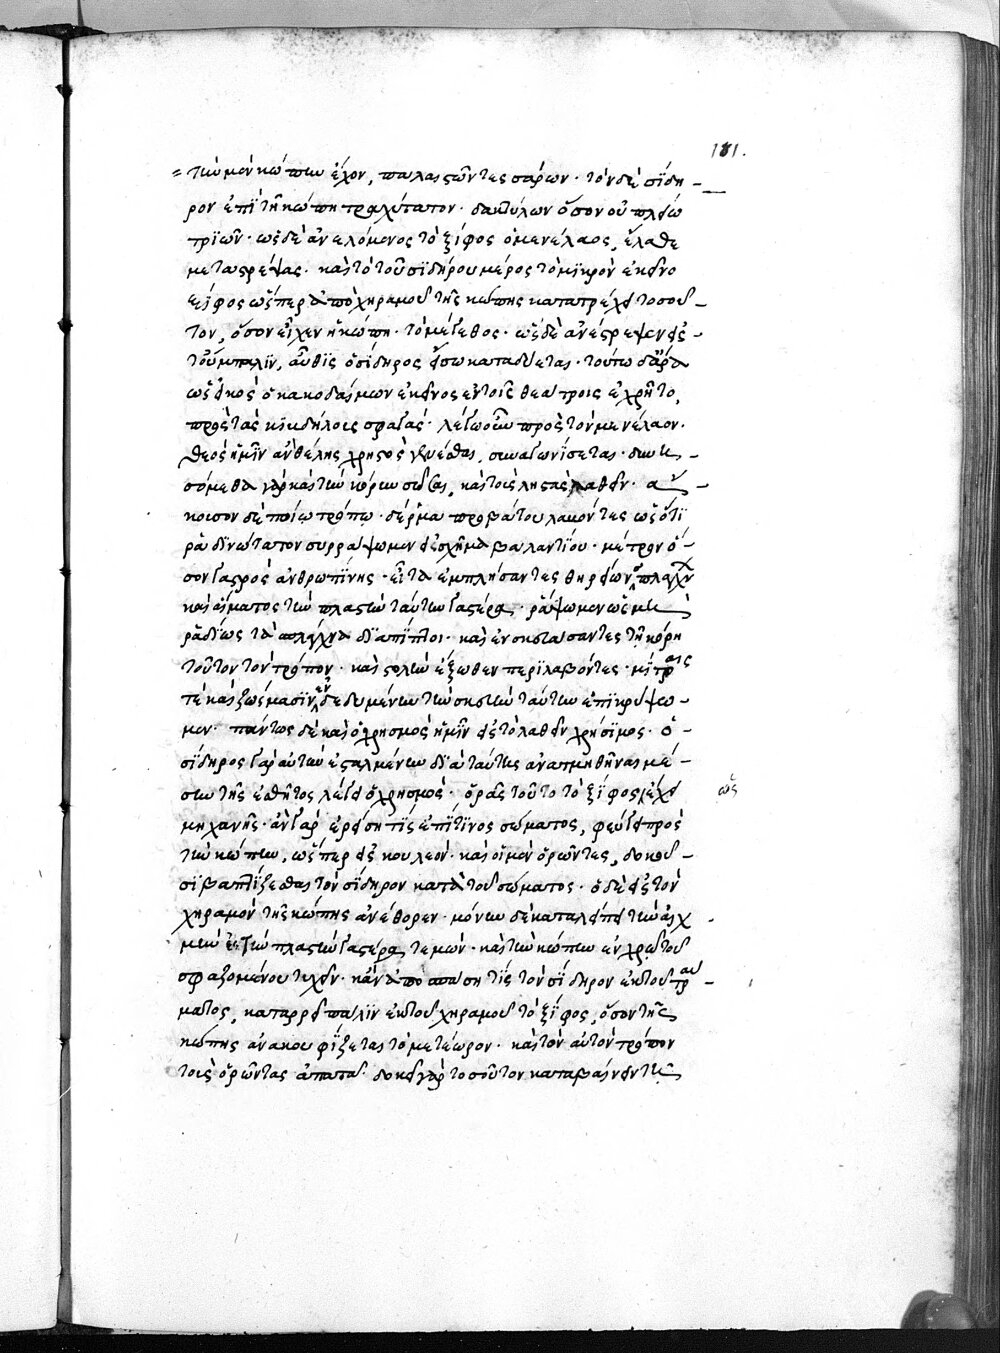 = τὴν μὲν κώπην ἔχον, παλαιστῶν τεσσάρων· τὸν δὲ σίδη –
ρον ἐπὶ τῇ κώπῃ βραχύτατον· δακτύλων ὅσον οὐ πλείω
τριῶν· ὡς δὲ ἀνελόμενος τὸ ξίφος ὁ μενέλαος, ἔλαθε
μεταστρέψας· κατὰ τὸ τοῦ σιδήρου μέρος τὸ μικρὸν ἐκεῖνο
ξίφος ὥσπερ ἀπὸ χηραμοῦ τῆς κώπης κατατρέχει τοσοῦ –
τον, ὅσον εἶχεν ἡ κώπη· τὸ μέγεθος· ὡς δὲ ἀνέστρεψεν εἰς –
τοὔμπαλιν, αὖθις ὁ σίδηρος εἴσω καταδύεται· τούτω δ' ἄρα
ὡς εἰκὸς ὁ κακοδαίμων ἐκεῖνος ἐν τοῖς θεάτροις ἐχρῆτο,
πρὸς τὰς κιβδήλοις σφαγάς· λέγω οὖν πρὸς τὸν μενέλαον·
θεὸς ἡμῖν ἂν θέλης χρηστὸς γενέσθαι, συναγωνίσεται· δυνη –
σόμεθα γὰρ καὶ τὴν κόρην σῶσαι, καὶ τοὺς ληστὰς λαθεῖν· ἄ –
κουσον δὲ ποίω τρόπω· δέρμα προβάτου λαβόντες ὡς ὅτι
ῥαδινώτατον συρράψωμεν εἰς σχῆμα βαλαντίου· μέτρον ὅ –
σον γαστρὸς ἀνθρωπίνης· εἶτα ἐμπλήσαντες θηρείων σπλάγχν
καὶ αἵματος τὴν πλαστὴν ταύτην γαστέρα, ῥάψωμεν ὡς μὴ
ῥαδίως τὰ σπλάγχνα διαπίπτοι· καὶ ἐνσκευάσαντες τὴν κόρην
τοῦτον τὸν τρόπον· καὶ στολὴν ἔξωθεν περιλαβόντες· μίτραις
τὲ καὶ ζώσμασιν ἐνδεδυμένην τὴν σκευὴν ταύτην ἐπικρύψω –
μεν· πάντως δὲ καὶ ὁ χρησμὸς ἡμῖν εἰς τὸ λαθεῖν χρήσιμος· ὁ –
σίδηρος γὰρ αὐτὴν ἐσταλμένην δι' αὐτῆς ἀνατμηθῆναι μέ –
σην τῆς ἐσθῆτος λέγει ὁ χρησμός· ὁρᾶς τοῦτο τὸ ξίφος ἔχει
ὡς
μηχανῆς· ἂν γὰρ ἐρείση τὶς ἐπί τινος σώματος, φεύγει πρὸς
τὴν κώπην, ὥσπερ εἰς κουλεόν· καὶ οἱ μὲν ὁρῶντες, δοκοῦ –
σι βαπτίζεσθαι τὸν σίδηρον κατὰ τοῦ σώματος· ὁ δὲ εἰς τὸν
χηραμὸν τῆς κώπης ἀνέθορεν· μόνην δὲ καταλείπει τὴν αἰχ –
μὴν εἰς τὴν πλαστὴν γαστέρα τεμεῖν· καὶ τὴν κώπην ἐν χρῶ τοῦ
σφαζομένου τυχεῖν· κἂν ἀποσπάση τὶς τὸν σίδηρον ἐκ τοῦ τραύ –
ματος, καταρρεῖ πάλιν ἐκ τοῦ χηραμοῦ τὸ ξίφος, ὅσον τῆς
κώπης ἀνακουφίζεται τὸ μετέωρον· καὶ τὸν αὐτὸν τρόπον
τοὺς ὁρῶντας ἀπατᾶ· δοκεῖ γὰρ τοσοῦτον καταβαίνειν τῇ
181.